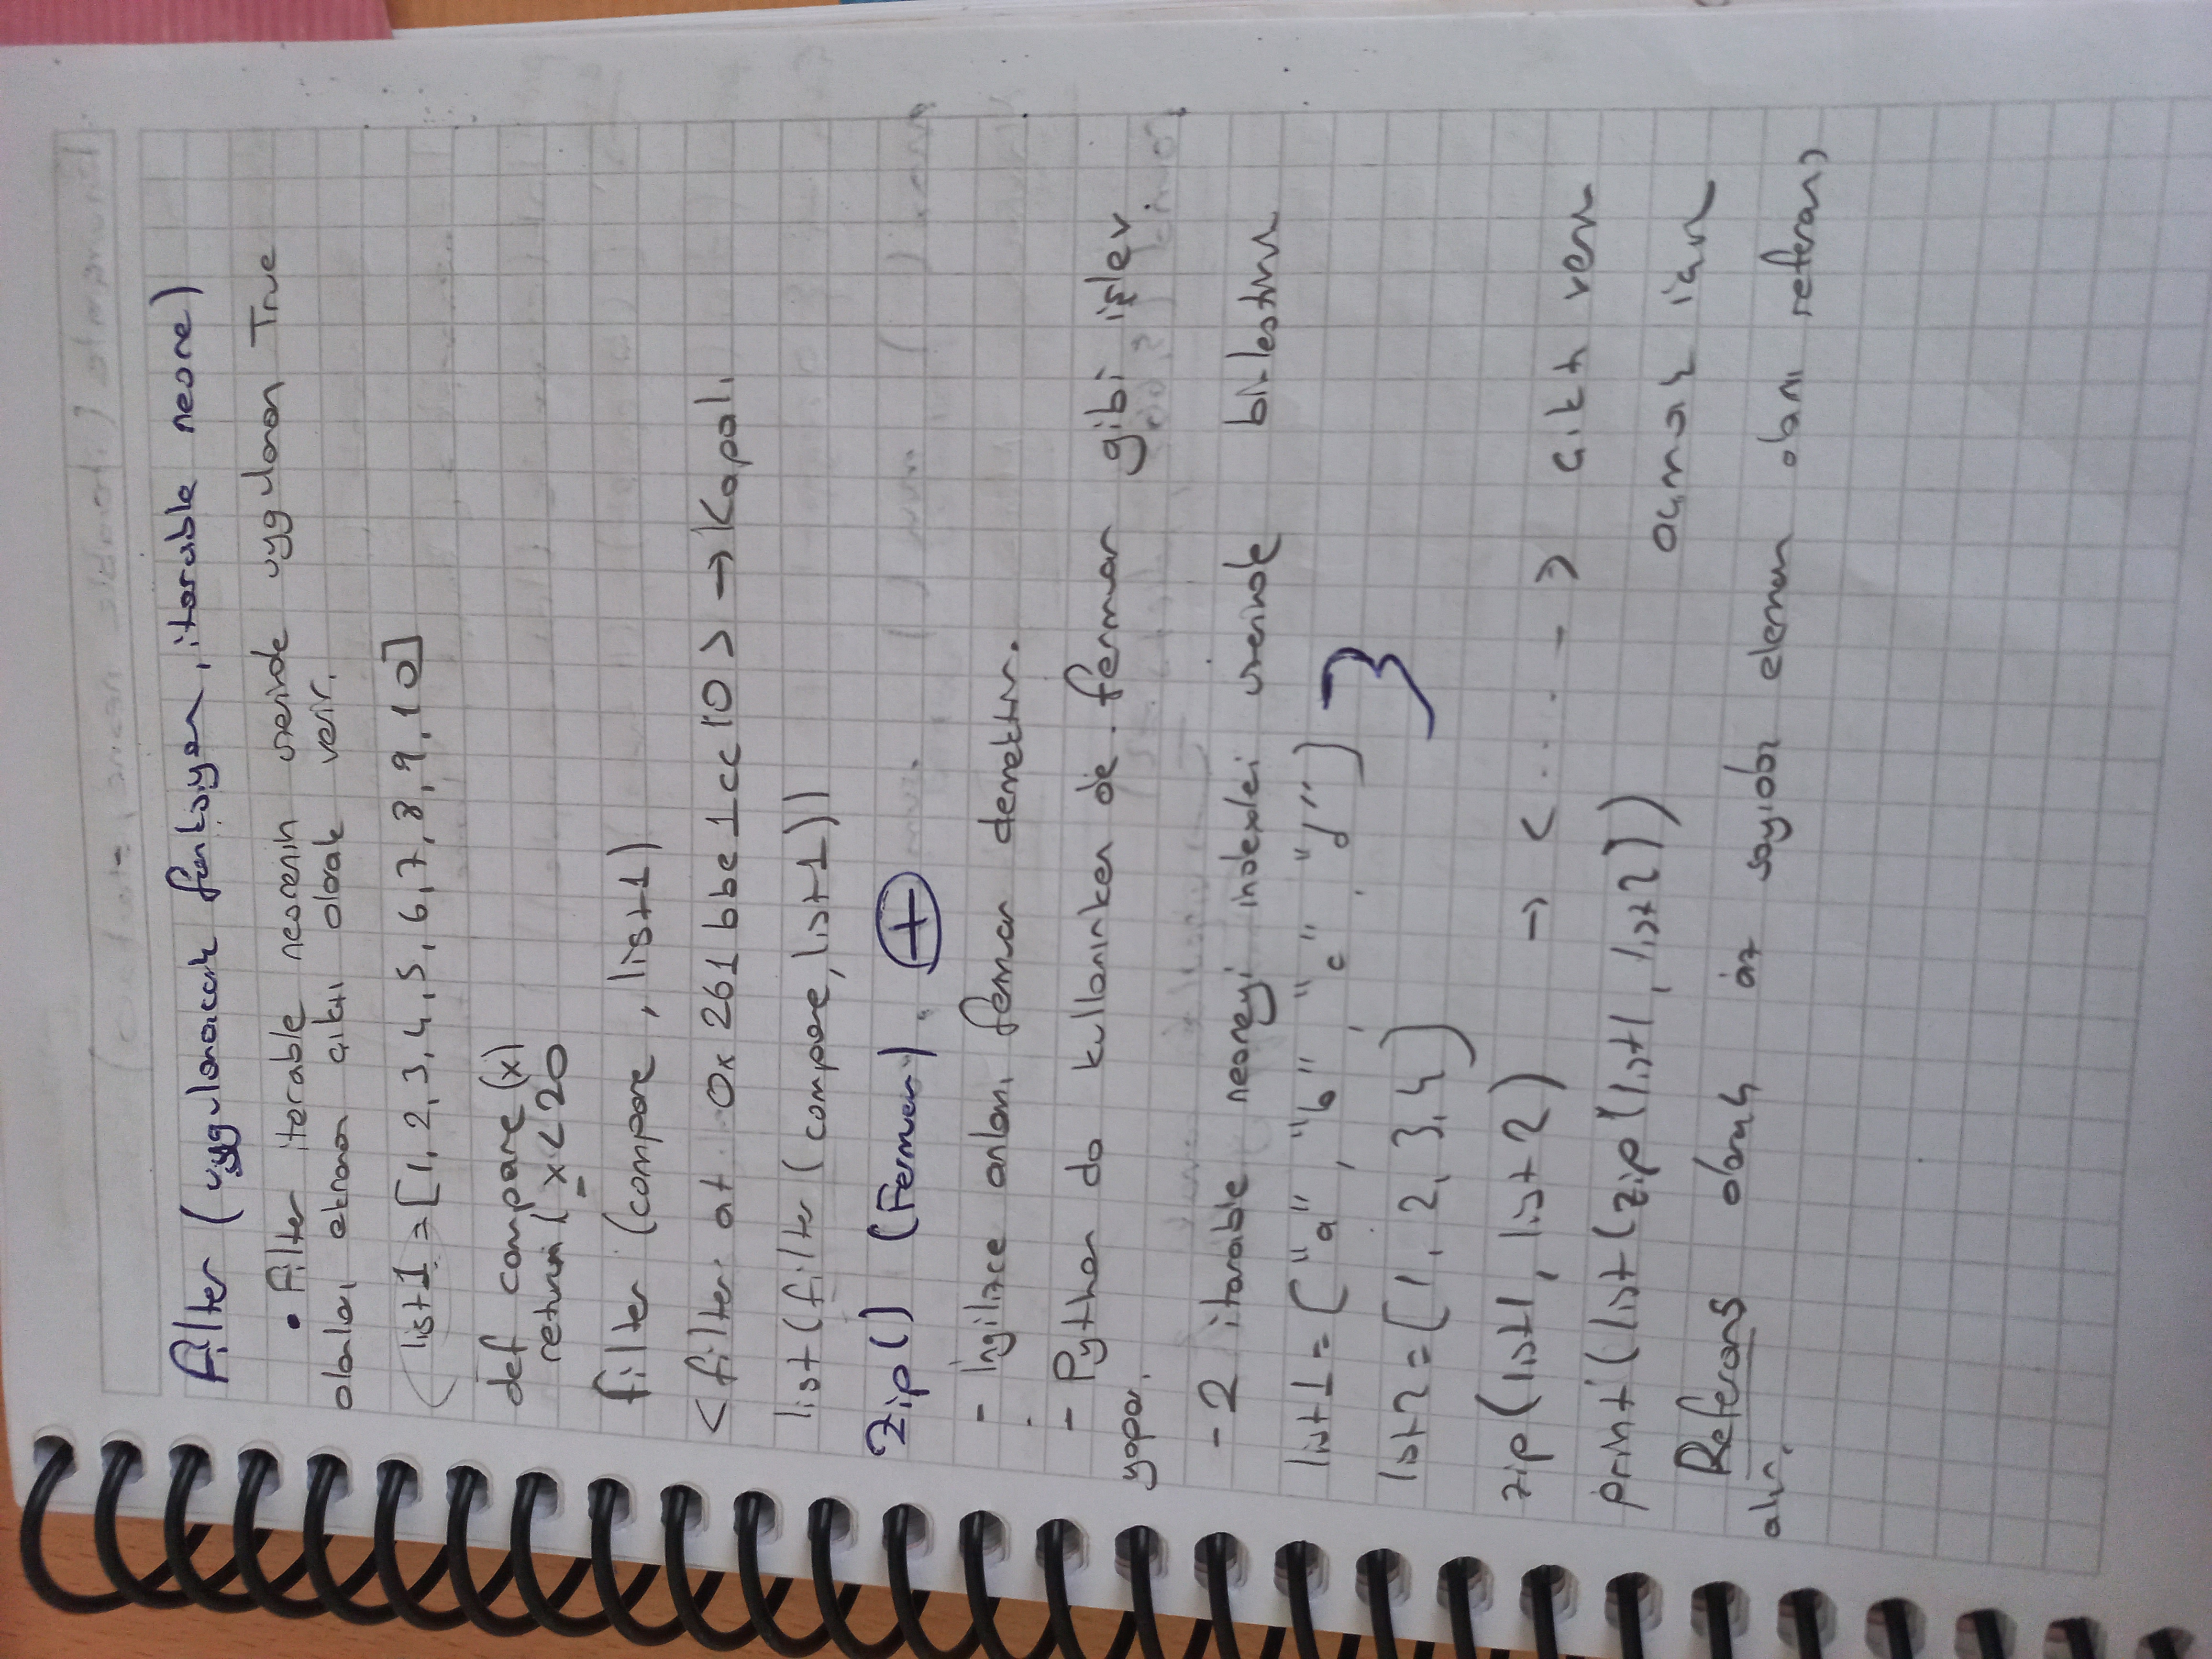 filter (uygulanacak fonksiyon, iterable nesne)
• Filter iterable nesnenin üzerinde uygulanan True
olanları ekrana çıktı olarak verir.
list1 = [1, 2, 3, 4, 5, 6, 7, 8, 9, 10]
def compare (x)
return ( x < 20
filter (compare, list1)
<filter at 0x261bbe1cc10> → Kapalı
list(filter (compare, list1))
Zip() (Fermuar). +
- İngilizce anlamı fermuar demektir.
- Python da kullanırken de fermuar gibi işlev
yapar.
- 2 iterable nesneyi indexleri üzerinde birleştirir
list1 = ["a", "b", "c", "d"]
list2 = [1, 2, 3, 4]
zip(list1, list2) → < ..... > çıktı verir
print(list(zip(list1, list2)) açmak için
Referans olarak az sayıda eleman olanı referans
alır.